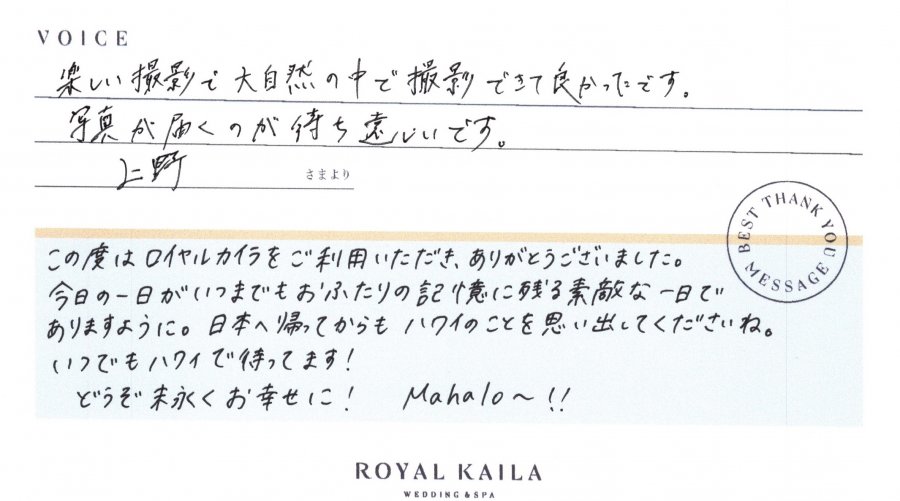 VOICE
楽しい撮影で大自然の中で撮影できて良かったです。
写真が届くのが待ち遠しいです。
上野 さまより
BEST THANK YOU MESSAGE
この度はロイヤルカイラをご利用いただき、ありがとうございました。
今日の一日がいつまでもおふたりの記憶に残る素敵な一日で
ありますように。日本へ帰ってからもハワイのことを思い出してくださいね。
いつでもハワイで待ってます！
どうぞ末永くお幸せに！ Mahalo〜!!
ROYAL KAILA
WEDDING & SPA